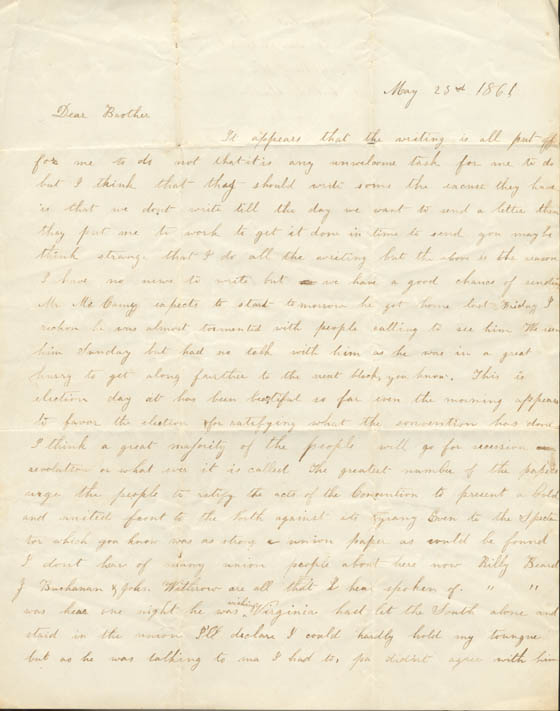 May 23rd 1861
Dear Brother
It appears that the writing is all put off
for me to do not that it is any unwelcome task for me to do
but I think that they should write some the excuse they have
is that we dont write till the day we want to send a letter then
they put me to work to get it done in time to send you maybe
think strange that I do all the writing but the above is the reason
I have no news to write but we have a good chance of sending
Mr Mc expects to start tomorrow he got home last Friday I
reckon he was almost tormented with people calling to see him We seen
him Sunday but had no talk with him as he was in a great
hurry to get along farther to the next block, you know. This is
election day it has been beautiful so far even the morning appears
to favor the election for ratifying what the convention has done
I think a great majority of the people will go for secession
revolution or what ever it is called The greatest number of the papers
urge the people to ratify the acts of the Convention to present a bold
and united front to the North against its tyrany Even to the Specta
tor which you know was as strong a union paper as could be found
I dont hear of many union people about here now Billy Beard
J Buchanan & John. Withrow are all that I hear spoken of. " "
was hear one night he was wishing Virginia had let the South alone and
staid in the union I'll declare I could hardly hold my toungue
but as he was talking to ma I had to, pa didint agree with him